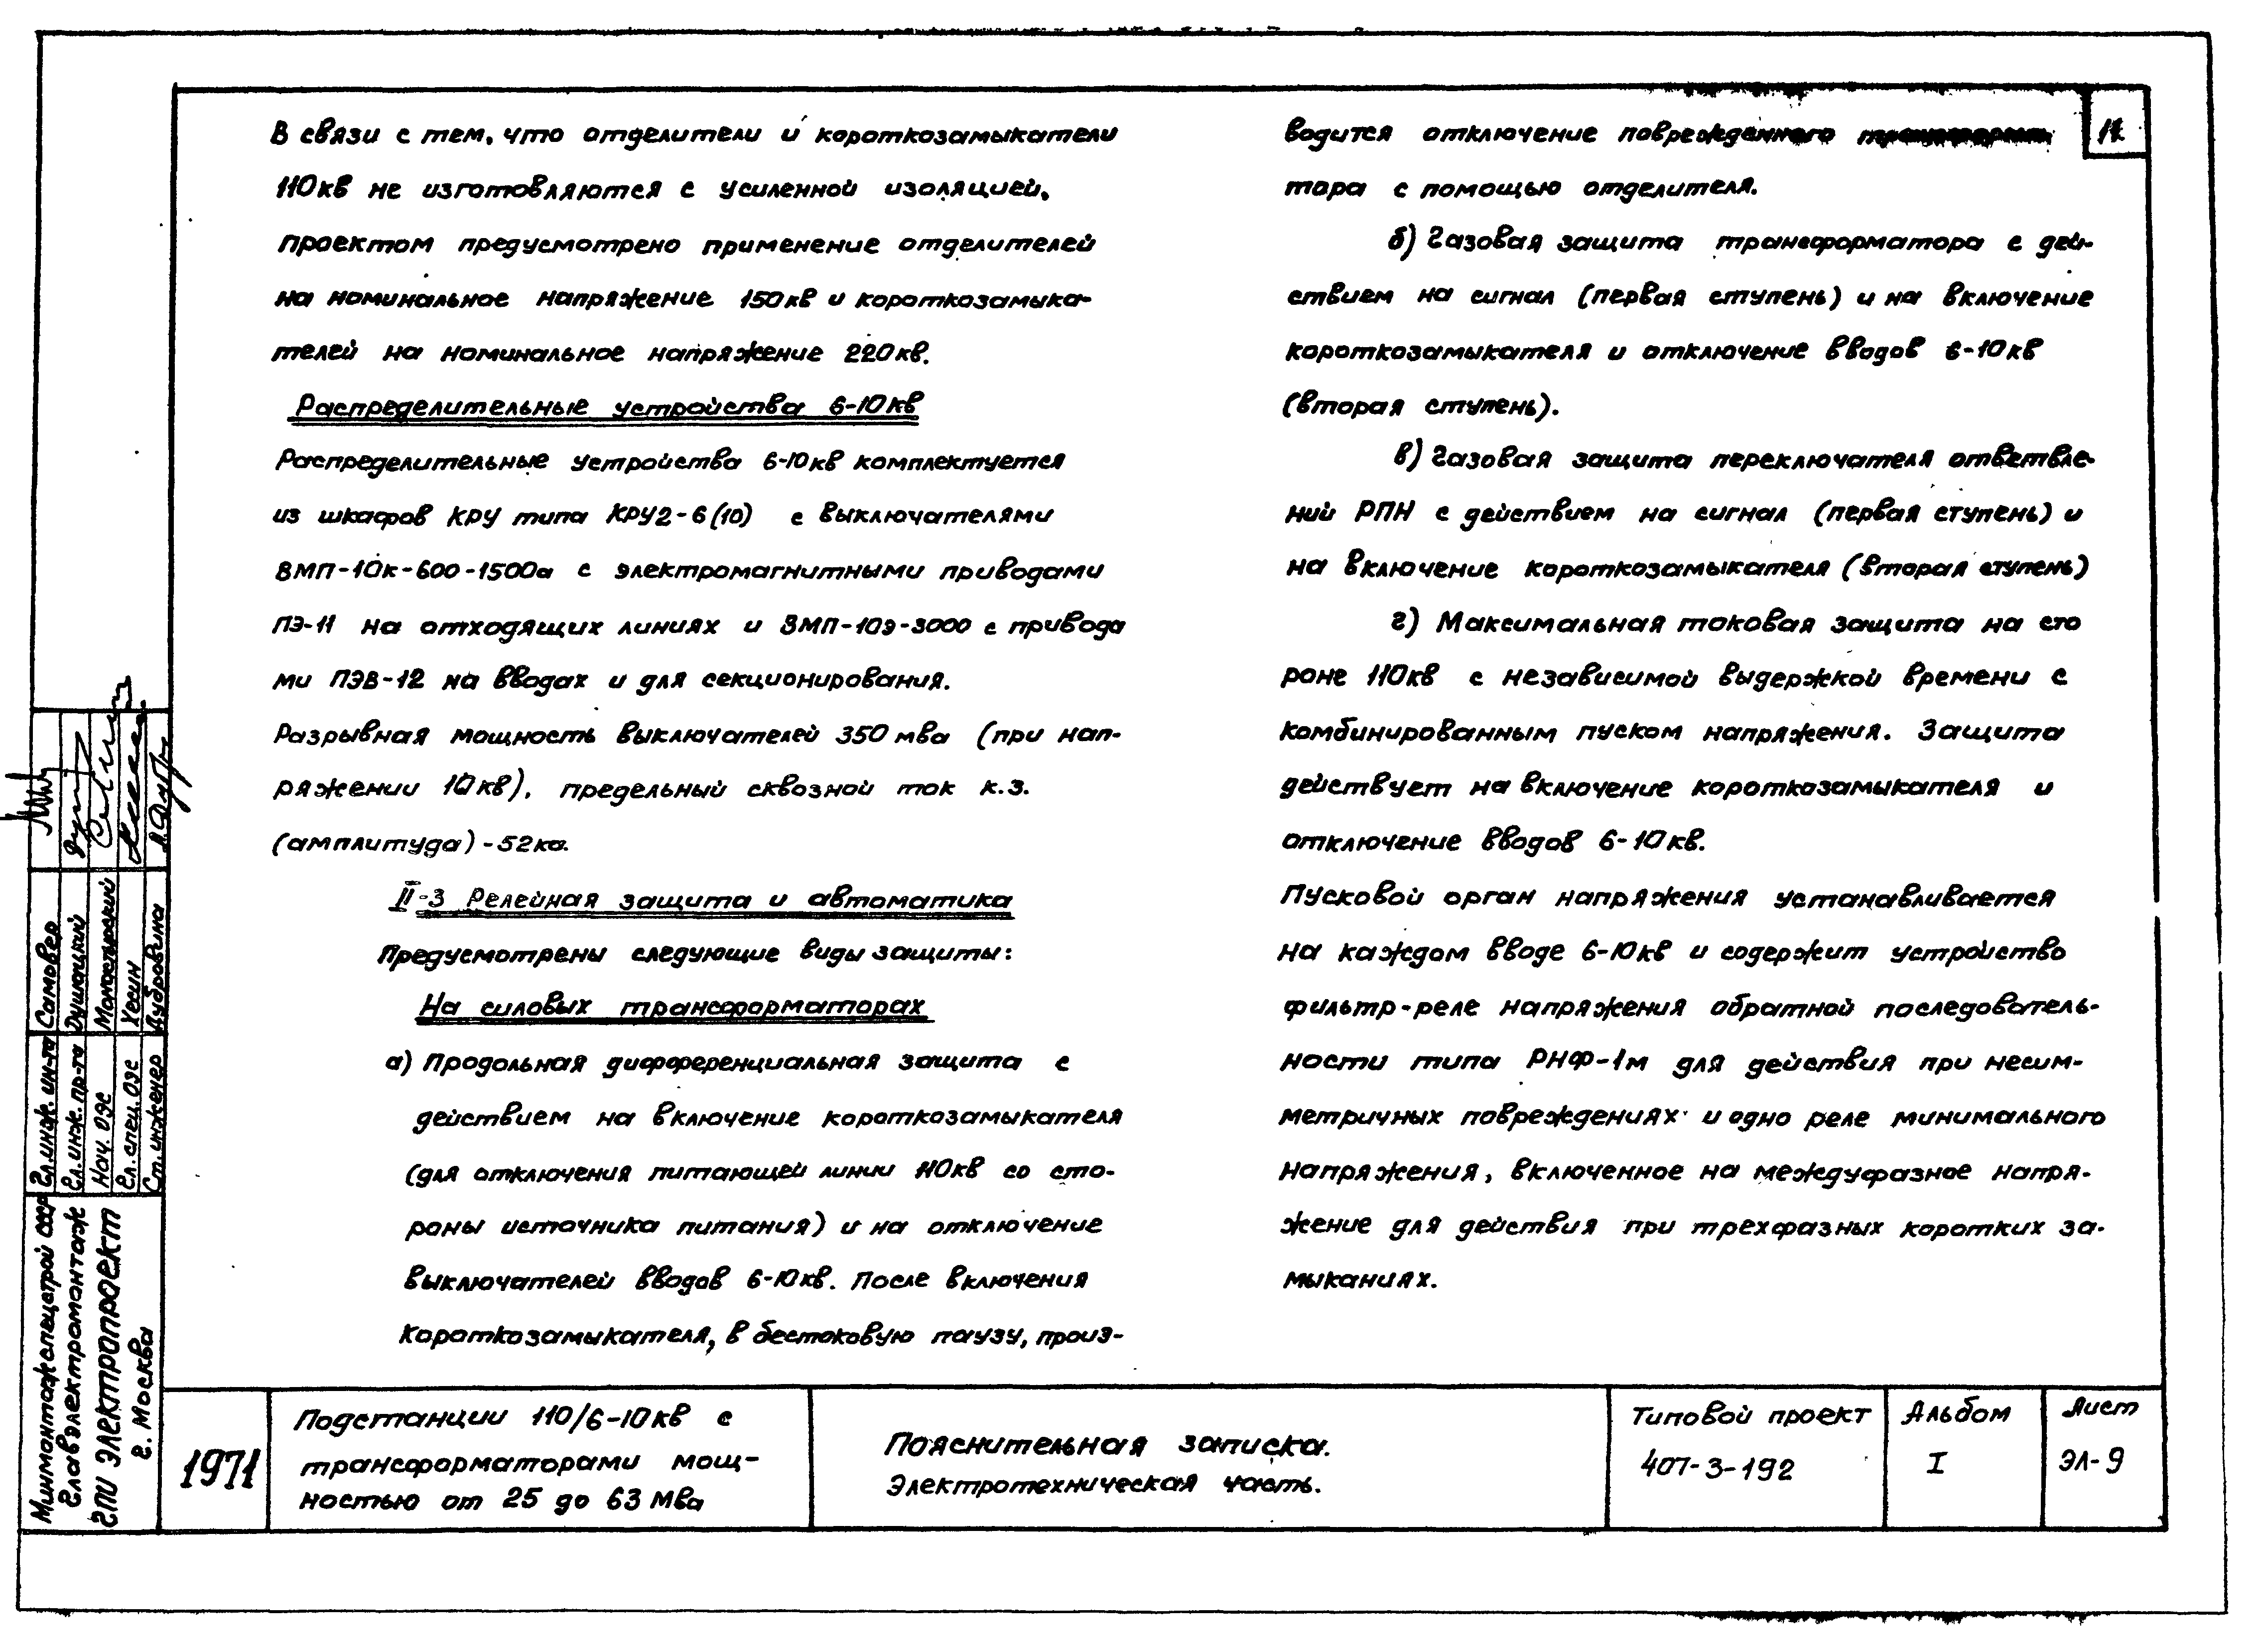 В связи с тем, что отделители и короткозамыкатели
110кв не изготовляются с усиленной изоляцией,
проектом предусмотрено применение отделителей
на номинальное напряжение 150кв и короткозамыка-
телей на номинальное напряжение 220кв.
Распределительные устройства 6-10кв
Распределительные устройства 6-10кв комплектуется
из шкафов КРУ типа КРУ2-6(10) с выключателями
ВМП-10к-600-1500а с электромагнитными приводами
ПЭ-11 на отходящих линиях и ВМП-10э-3000 с привода
ми ПЭВ-12 на вводах и для секционирования.
Разрывная мощность выключателей 350мва (при нап-
ряжении 10кв), предельный сквозной ток к.з.
(амплитуда)-52ка.
II-3 Релейная защита и автоматика
Предусмотрены следующие виды защиты:
На силовых трансформаторах
а) Продольная дифференциальная защита с
действием на включение короткозамыкателя
(для отключения питающей линии 110кв со сто-
роны источника питания) и на отключение
выключателей вводов 6-10кв. После включения
короткозамыкателя, в бестоковую паузу, произ-
водится отключение поврежденного
тора с помощью отделителя.
б) Газовая защита трансформатора с дей-
ствием на сигнал (первая ступень) и на включение
короткозамыкателя и отключение вводов 6-10кв
(вторая ступень).
в) Газовая защита переключателя ответвле-
ний РПН с действием на сигнал (первая ступень) и
на включение короткозамыкателя (вторая ступень)
г) Максимальная токовая защита на сто
роне 110кв с независимой выдержкой времени с
комбинированным пуском напряжения. Защита
действует на включение короткозамыкателя и
отключение вводов 6-10кв.
Пусковой орган напряжения устанавливается
на каждом вводе 6-10кв и содержит устройство
фильтр-реле напряжения обратной последователь-
ности типа РНФ-1м для действия при несим-
метричных повреждениях и одно реле минимального
напряжения, включенное на междуфазное напря-
жение для действия при трехфазных коротких за-
мыканиях.
Гл.инж. ин-та Самовер
Гл.инж. пр-та
Нач. ОЭС
Гл. спец. ОЭС Хесин
Ст. инженер Дубровина
Минмонтажспецстрой СССР
Главэлектромонтаж
ГПИ Электропроект
г. Москва
1971
Подстанции 110/6-10кв с
трансформаторами мощ-
ностью от 25 до 63 Мва
Пояснительная записка.
Электротехническая часть.
Типовой проект
407-3-192
Альбом
I
Лист
ЭЛ-9